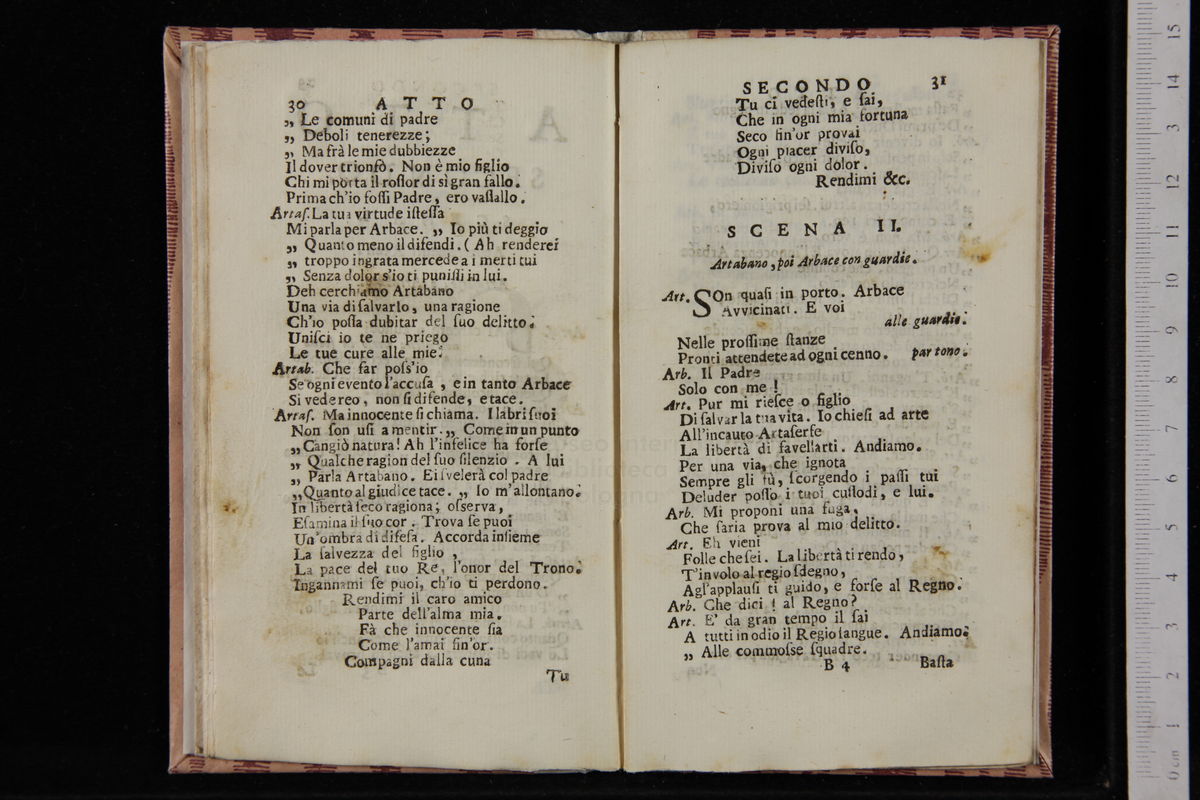 30 ATTO
„ Le comuni di padre
„ Deboli tenerezze;
„ Ma frà le mie dubbiezze
Il dover trionfò. Non è mio figlio
Chi mi porta il roſſor di sì gran fallo.
Prima ch'io foſſi Padre, ero vaſſallo.
Artaſ. La tua virtude iſteſſa
Mi parla per Arbace. „ Io più ti deggio
„ Quanto meno il difendi. (Ah renderei
„ troppo ingrata mercede a i merti tui
„ Senza dolor s'io ti puniſſi in lui.
Deh cerchiamo Artabano
Una via di ſalvarlo, una ragione
Ch'io poſſa dubitar del ſuo delitto.
Uniſci io te ne priego
Le tue cure alle mie.
Artab. Che far poſs'io
Se ogni evento l'accuſa, e in tanto Arbace
Si vede reo, non ſi difende, e tace.
Artaſ. Ma innocente ſi chiama. I labri ſuoi
Non ſon uſi a mentir. „ Come in un punto
„ Cangiò natura! Ah l'infelice ha forſe
„ Qualche ragion del ſuo ſilenzio. A lui
„ Parla Artabano. Ei ſvelerà col padre
„ Quanto al giudice tace. „ Io m'allontano.
In libertà ſeco ragiona; oſserva,
Eſamina il ſuo cor. Trova ſe puoi
Un'ombra di difeſa. Accorda inſieme
La ſalvezza del figlio,
La pace del tuo Re, l'onor del Trono.
Ingannami ſe puoi, ch'io ti perdono.
Rendimi il caro amico
Parte dell'alma mia.
Fà che innocente ſia
Come l'amai fin'or.
Compagni dalla cuna
Tu
SECONDO 31
Tu ci vedeſti, e ſai,
Che in ogni mia fortuna
Seco fin'or provai
Ogni piacer diviſo,
Diviſo ogni dolor.
Rendimi &c.
SCENA II.
Artabano, poi Arbace con guardie.
Art. SOn quaſi in porto. Arbace
Avvicinati. E voi
alle guardie.
Nelle proſſime ſtanze
Pronti attendete ad ogni cenno. partono.
Arb. Il Padre
Solo con me!
Art. Pur mi rieſce o figlio
Di ſalvar la tua vita. Io chieſi ad arte
All'incauto Artaſerſe
La libertà di favellarti. Andiamo.
Per una via, che ignota
Sempre gli fù, ſcorgendo i paſſi tui
Deluder poſſo i tuoi cuſtodi, e lui.
Arb. Mi proponi una fuga,
Che ſaria prova al mio delitto.
Art. Eh vieni
Folle che ſei. La libertà ti rendo,
T'involo al regio ſdegno,
Agl'applauſi ti guido, e forſe al Regno.
Arb. Che dici! al Regno?
Art. E' da gran tempo il ſai
A tutti in odio il Regio ſangue. Andiamo.
„ Alle commoſse ſquadre.
B 4 Baſta